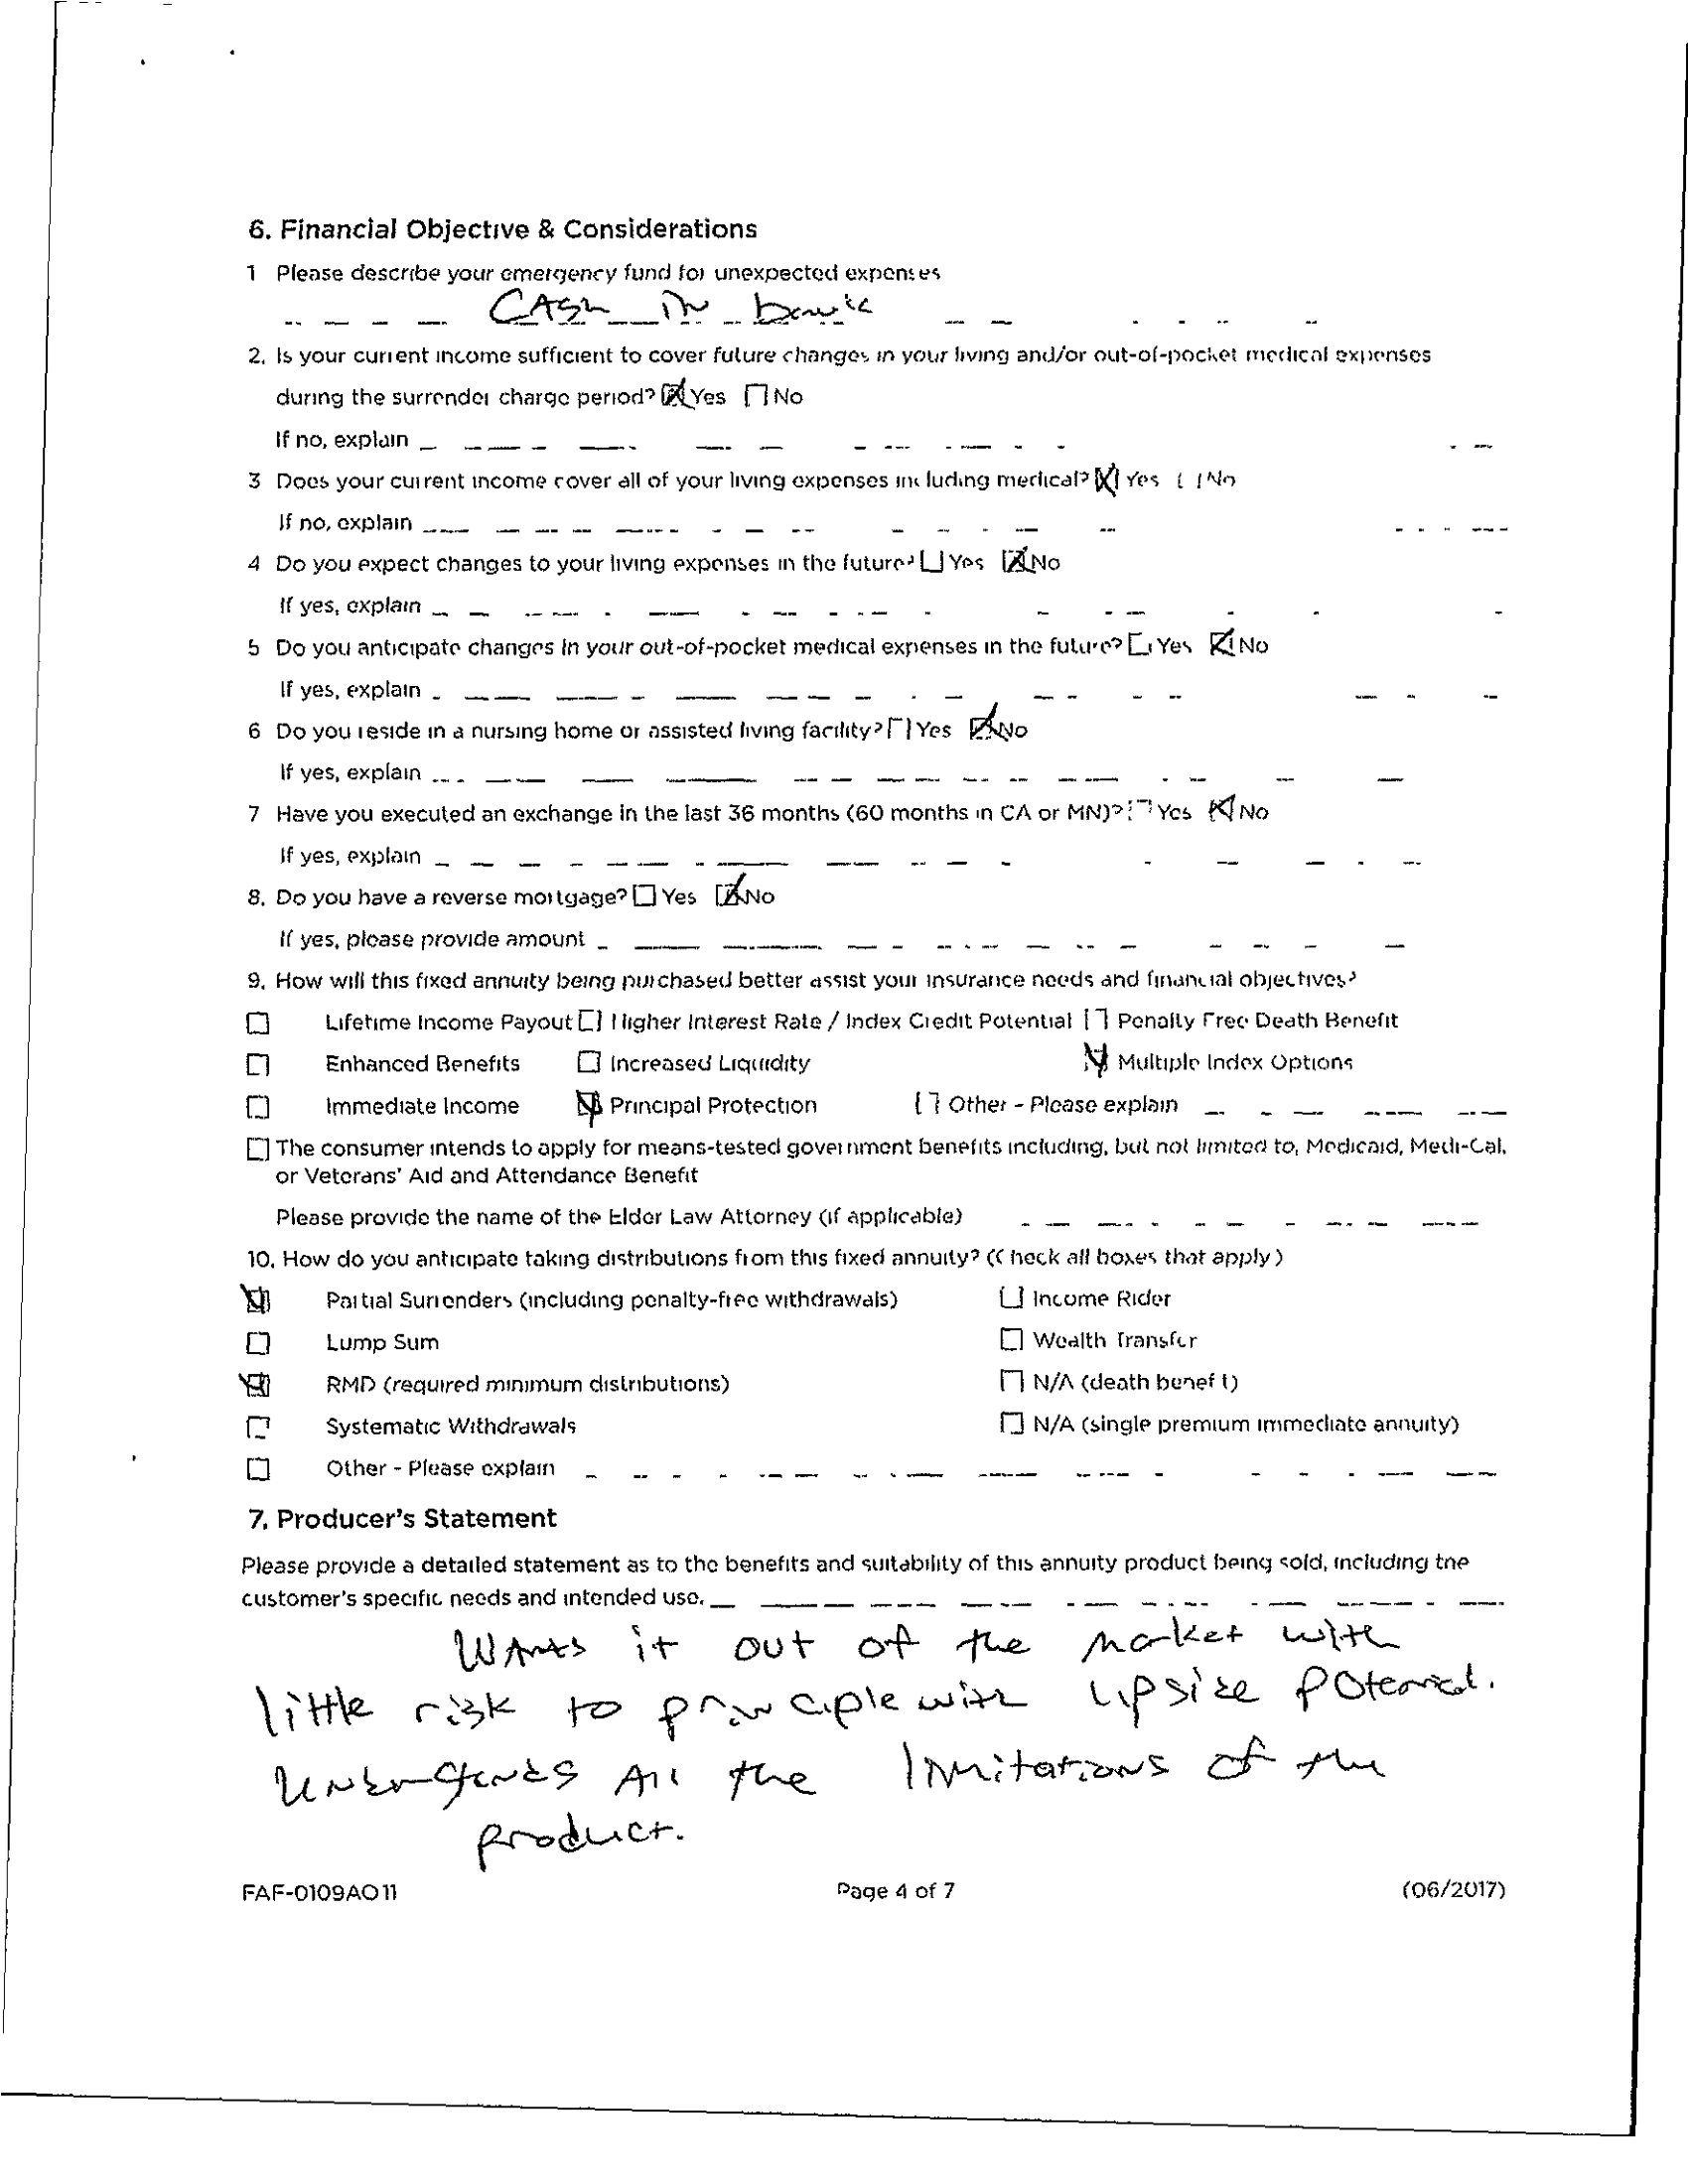 6. Financial Objective & Considerations
1 Please describe your emergency fund for unexpected expenses
CASh in bank
2. Is your current income sufficient to cover future changes in your living and/or out-of-pocket medical expenses
during the surrender charge period? ☒ Yes ☐ No
If no, explain
3 Does your current income cover all of your living expenses including medical? ☒ Yes ☐ No
If no, explain
4 Do you expect changes to your living expenses in the future? ☐ Yes ☒ No
If yes, explain
5 Do you anticipate changes in your out-of-pocket medical expenses in the future? ☐ Yes ☒ No
If yes, explain
6 Do you reside in a nursing home or assisted living facility? ☐ Yes ☒ No
If yes, explain
7 Have you executed an exchange in the last 36 months (60 months in CA or MN)? ☐ Yes ☒ No
If yes, explain
8. Do you have a reverse mortgage? ☐ Yes ☒ No
If yes, please provide amount
9. How will this fixed annuity being purchased better assist your insurance needs and financial objectives?
☐ Lifetime Income Payout ☐ Higher Interest Rate / Index Credit Potential ☐ Penalty Free Death Benefit
☐ Enhanced Benefits ☐ Increased Liquidity ☒ Multiple Index Options
☐ Immediate Income ☒ Principal Protection ☐ Other - Please explain
☐ The consumer intends to apply for means-tested government benefits including, but not limited to, Medicaid, Medi-Cal,
or Veterans' Aid and Attendance Benefit
Please provide the name of the Elder Law Attorney (if applicable)
10. How do you anticipate taking distributions from this fixed annuity? (Check all boxes that apply)
☒ Partial Surrenders (including penalty-free withdrawals) ☐ Income Rider
☐ Lump Sum ☐ Wealth Transfer
☒ RMD (required minimum distributions) ☐ N/A (death benefit)
☐ Systematic Withdrawals ☐ N/A (single premium immediate annuity)
☐ Other - Please explain
7. Producer's Statement
Please provide a detailed statement as to the benefits and suitability of this annuity product being sold, including the
customer's specific needs and intended use.
WAnts it out of the market with
little risk to principle with upsize potential.
Understands All the limitations of the
product.
FAF-0109AO 11 Page 4 of 7 (06/2017)